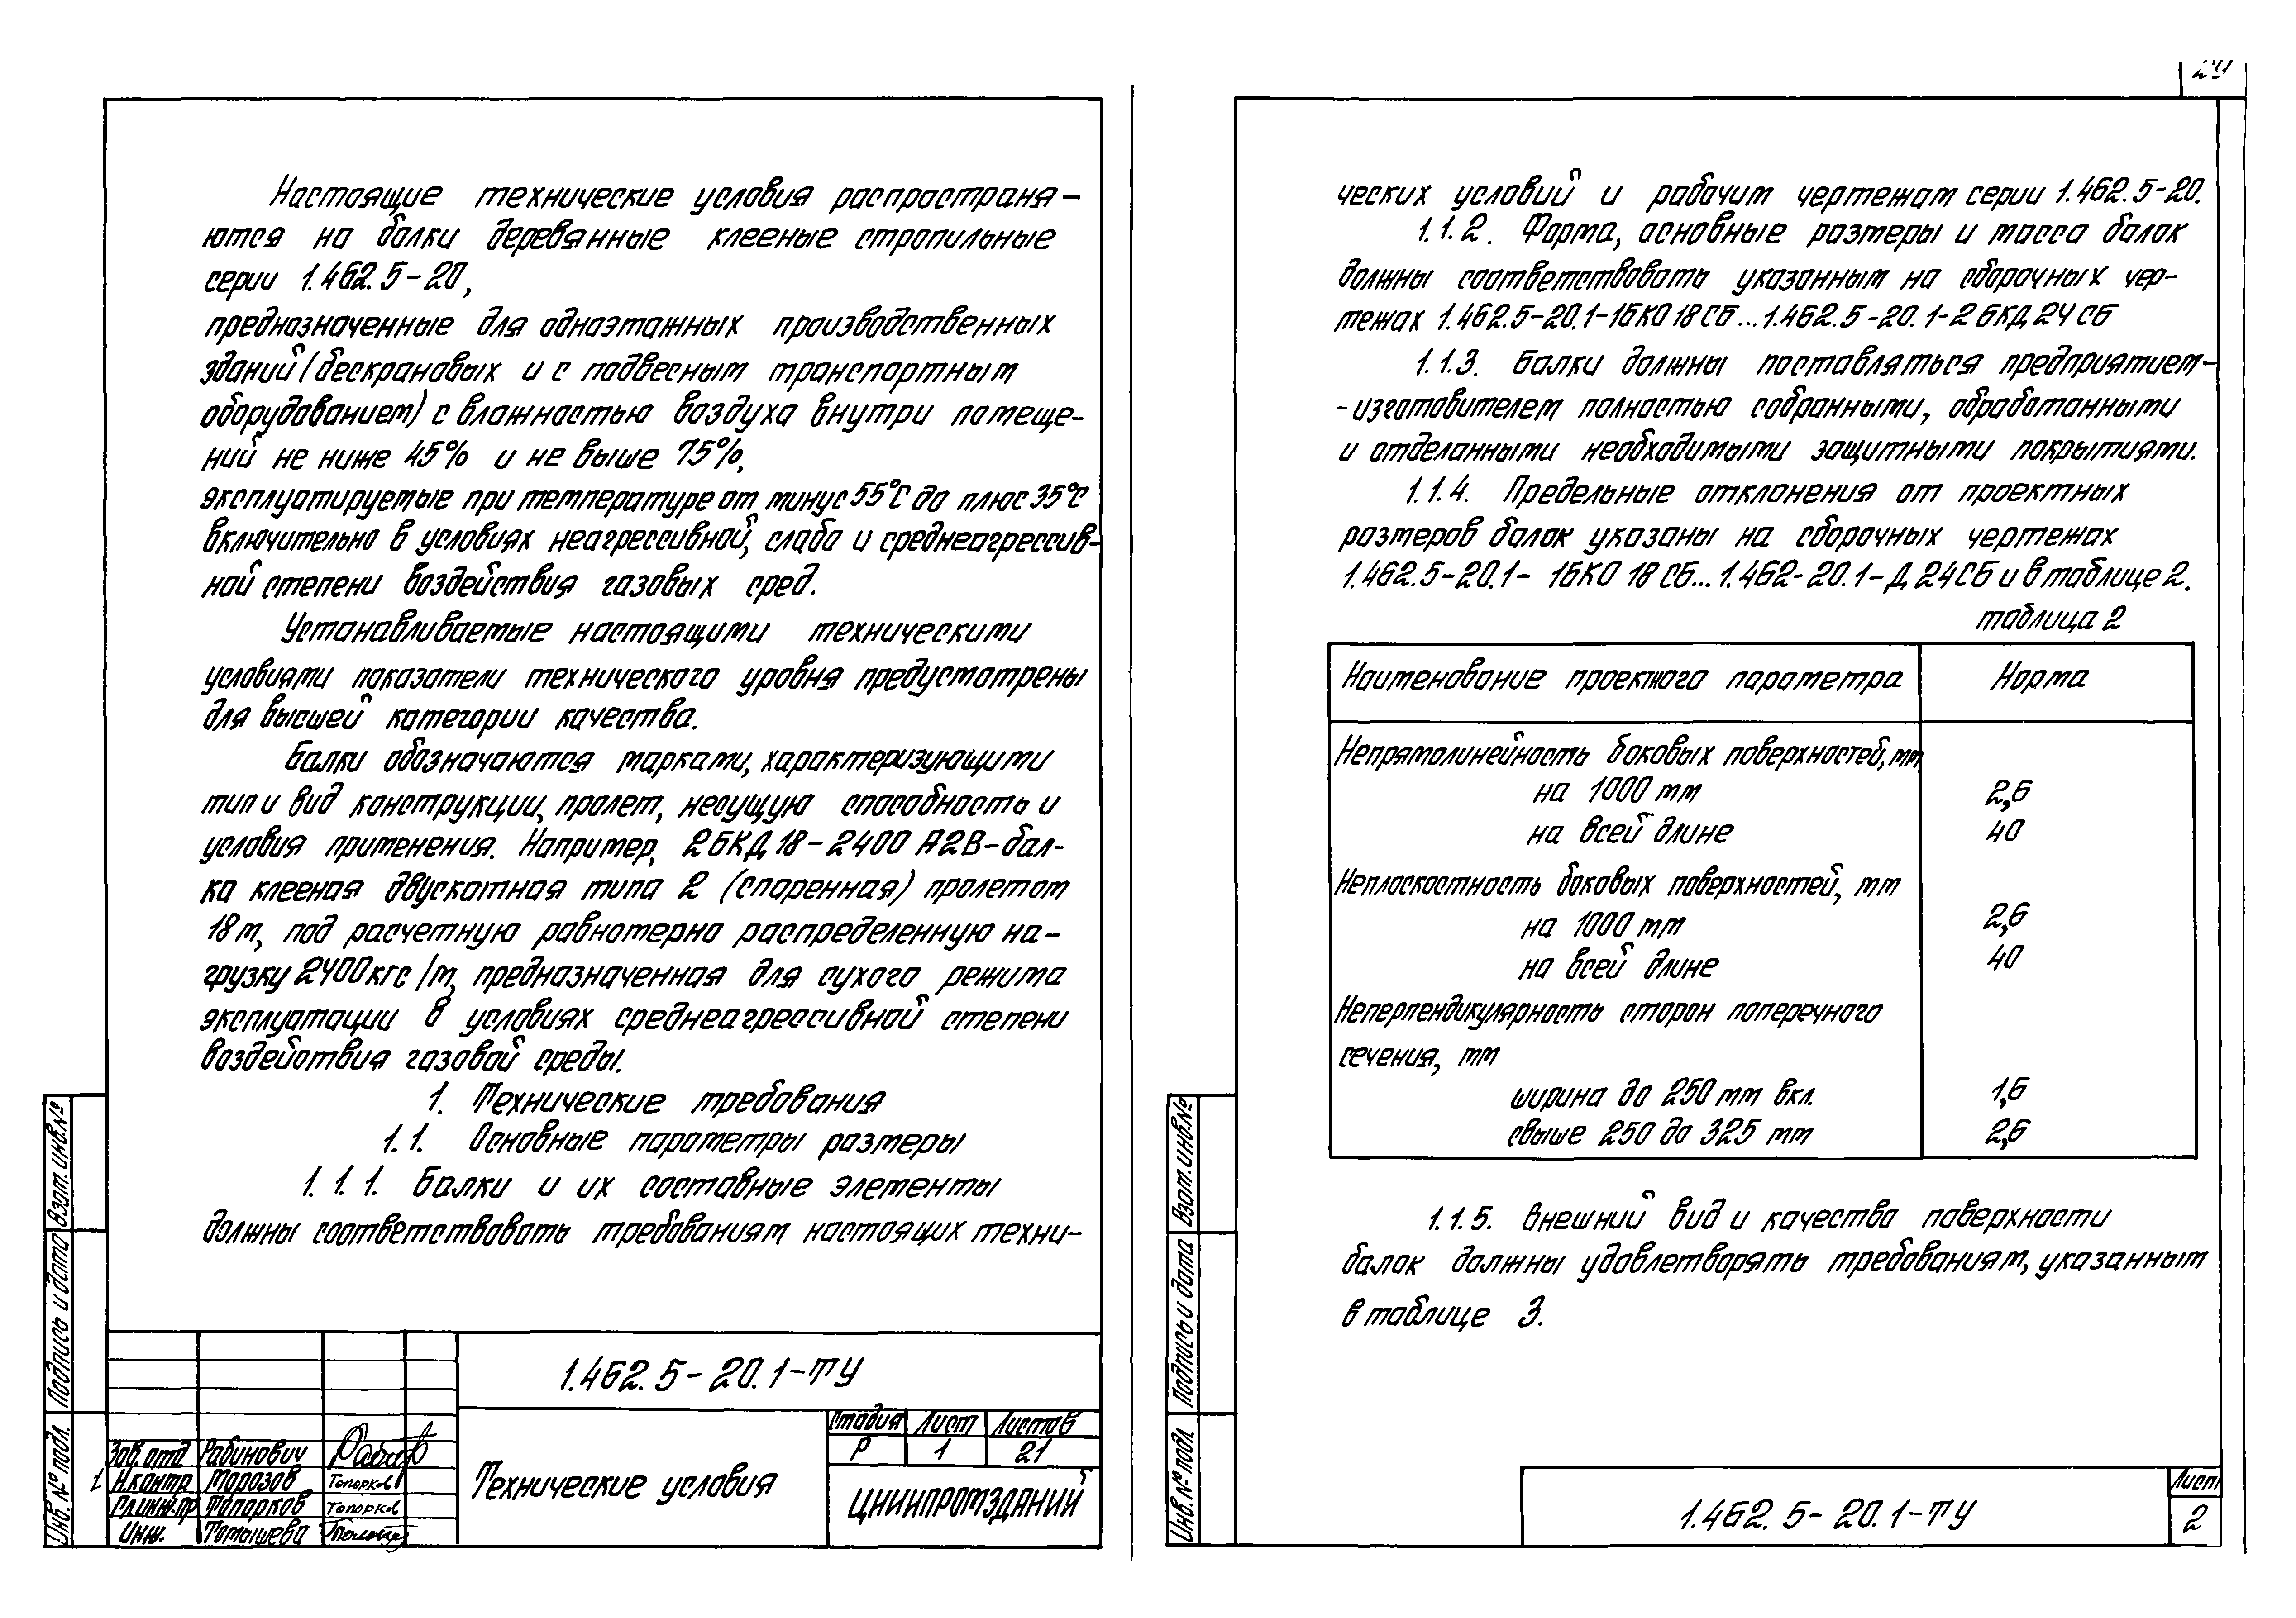 Настоящие технические условия распространя-
ются на балки деревянные клееные стропильные
серии 1.462.5-20,
предназначенные для одноэтажных производственных
зданий (бескрановых и с подвесным транспортным
оборудованием) с влажностью воздуха внутри помеще-
ний не ниже 45% и не выше 75%,
эксплуатируемые при температуре от минус 55°С до плюс 35°С
включительно в условиях неагрессивной, слабо и среднеагрессив-
ной степени воздействия газовых сред.
Устанавливаемые настоящими техническими
условиями показатели технического уровня предусмотрены
для высшей категории качества.
Балки обозначаются марками, характеризующими
тип и вид конструкции, пролет, несущую способность и
условия применения. Например, 2БКД 18-2400 А2В-бал-
ка клееная двускатная типа 2 (спаренная) пролетом
18 м, под расчетную равномерно распределенную на-
грузку 2400 кгс/м, предназначенная для сухого режима
эксплуатации в условиях среднеагрессивной степени
воздействия газовой среды.
1. Технические требования
1.1. Основные параметры размеры
1.1.1. Балки и их составные элементы
должны соответствовать требованиям настоящих техни-
Взам. инв. №
Подпись и дата
Инв. № подл.
1.462.5-20.1-ТУ
Зав. отд Рабинович
Н.контр Морозов Топорков
Гл.инж.пр Топорков Топорков
Инж. Томышева
Технические условия
Стадия Лист Листов
Р 1 21
ЦНИИПРОМЗДАНИЙ
ческих условий и рабочим чертежам серии 1.462.5-20.
1.1.2. Форма, основные размеры и масса балок
должны соответствовать указанным на сборочных чер-
тежах 1.462.5-20.1-1БКО 18 СБ...1.462.5-20.1-2БКД 24 СБ
1.1.3. Балки должны поставляться предприятием-
-изготовителем полностью собранными, обработанными
и отделанными необходимыми защитными покрытиями.
1.1.4. Предельные отклонения от проектных
размеров балок указаны на сборочных чертежах
1.462.5-20.1- 1БКО 18 СБ... 1.462-20.1-Д 24СБ и в таблице 2.
таблица 2
Наименование проектного параметра Норма
Непрямолинейность боковых поверхностей, мм
на 1000 мм 2,6
на всей длине 40
Неплоскостность боковых поверхностей, мм
на 1000 мм 2,6
на всей длине 40
Неперпендикулярность сторон поперечного
сечения, мм
ширина до 250 мм вкл. 1,6
свыше 250 до 325 мм 2,6
1.1.5. Внешний вид и качество поверхности
балок должны удовлетворять требованиям, указанным
в таблице 3.
Взам. инв. №
Подпись и дата
Инв. № подл
1.462.5-20.1-ТУ
Лист
2